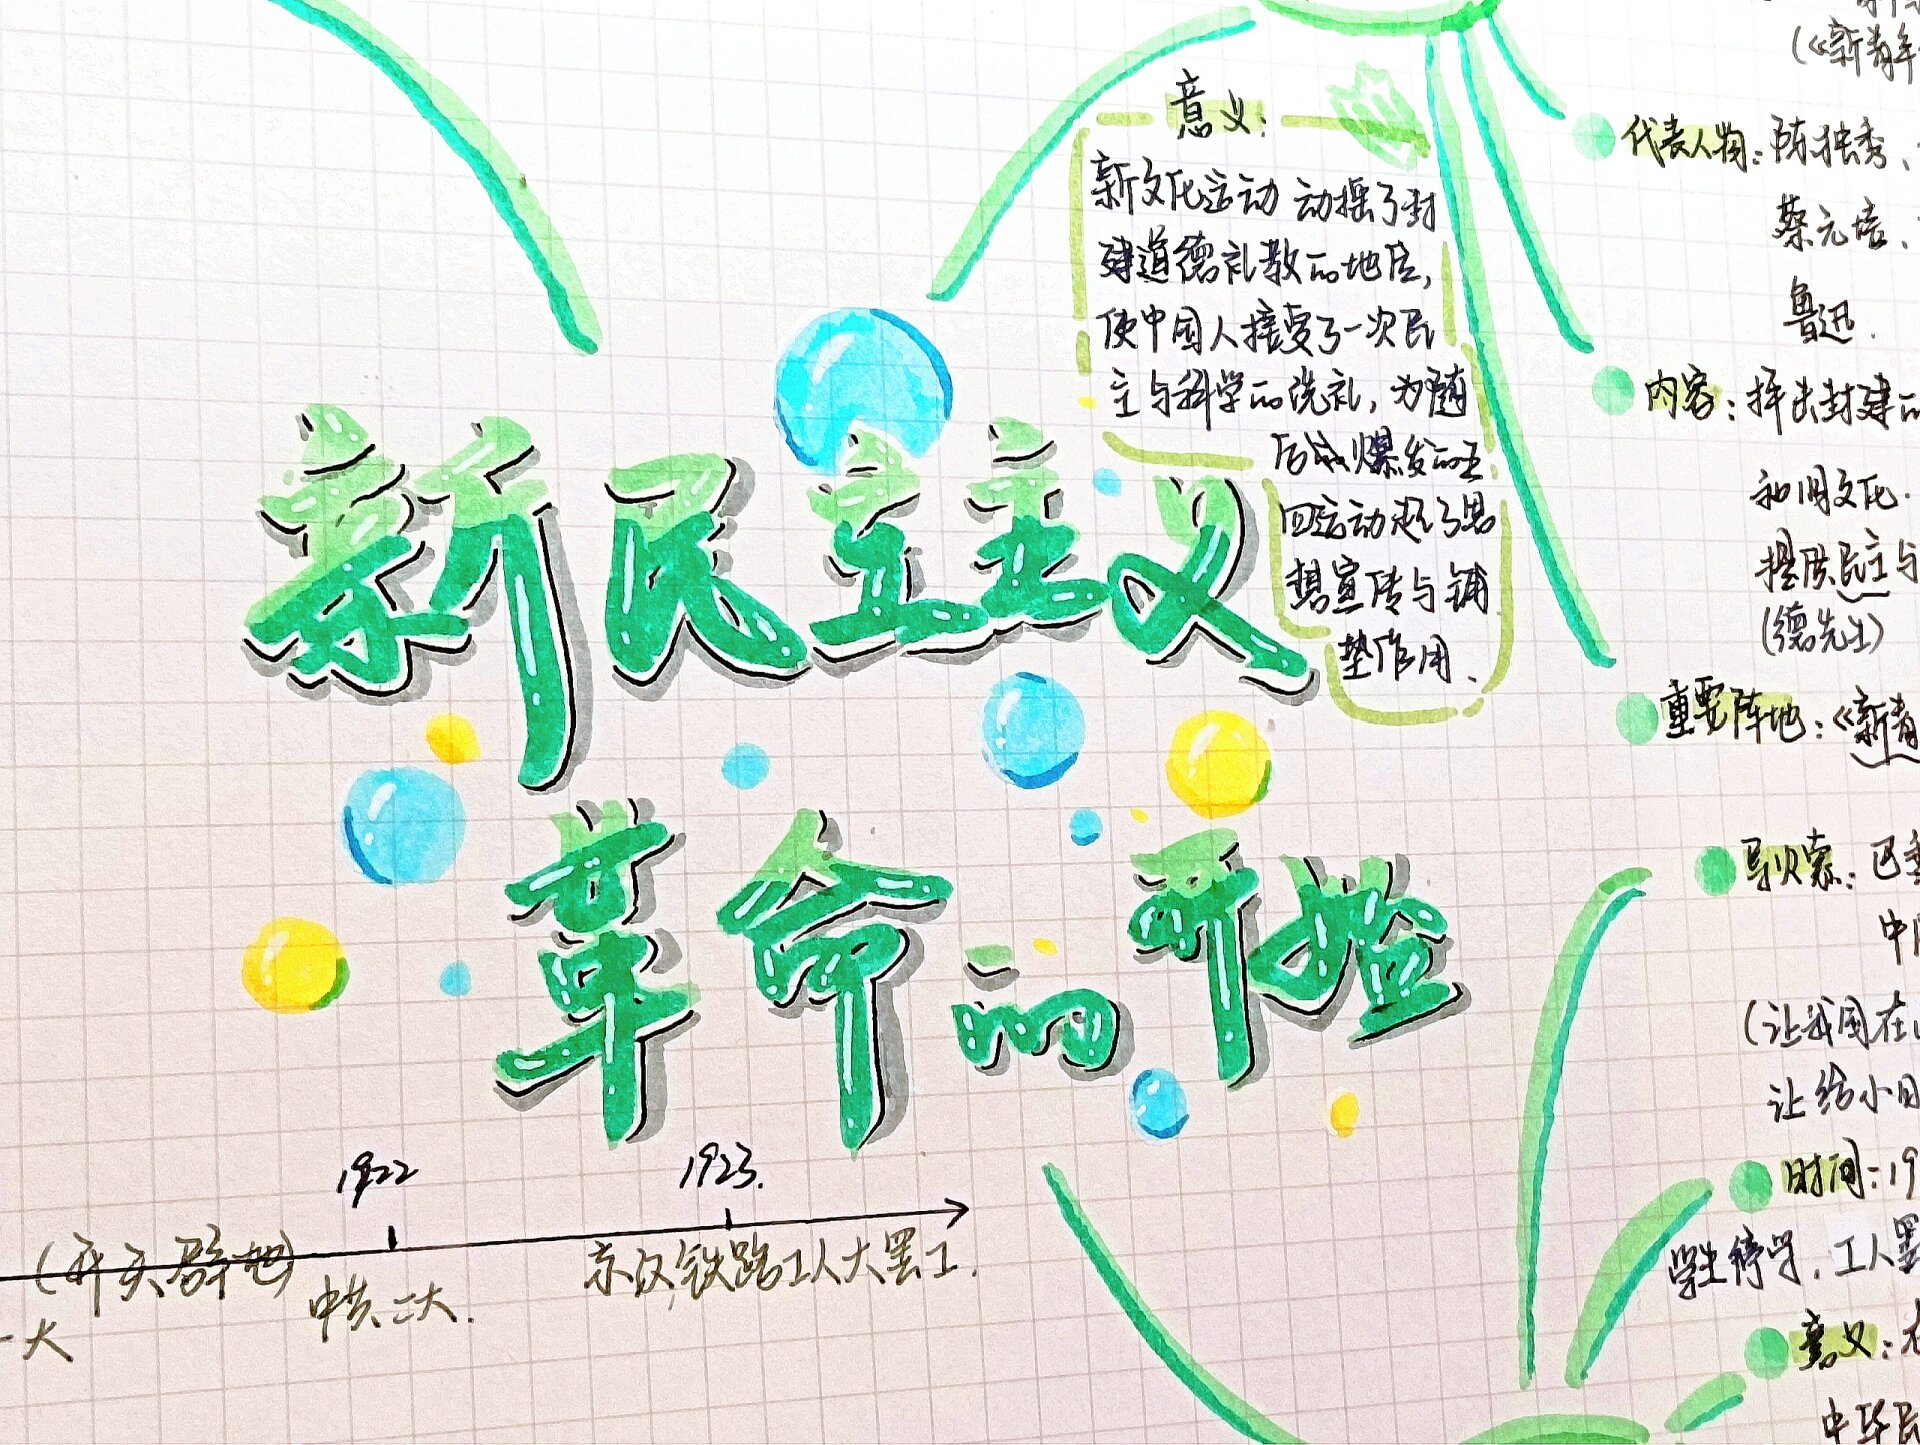 (《新青年
意义:
新文化运动 动摇了封
建道德礼教的地位,
使中国人接受了一次民
主与科学的洗礼, 为随
后的爆发的五
四运动起了思
想宣传与铺
垫作用.
代表人物: 陈独秀、
蔡元培、
鲁迅.
内容: 抨击封建的
和旧文化.
提倡民主与
(德先生)
重要阵地:《新青
新民主主义
革命的开始
导火索: 巴黎
中
(让我国在
让给小日
时间: 19
学生停学. 工人罢
意义:
中华民
1922
1923.
(开天辟地)
一大
中共二大.
京汉铁路工人大罢工.